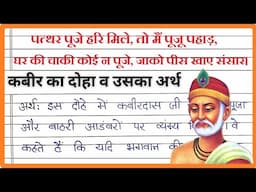 पत्थर पूजे हरि मिले, तो मैं पूजू पहाड़,
घर की चाकी कोई न पूजे, जाको पीस खाए संसार।
कबीर का दोहा व उसका अर्थ
अर्थ: इस दोहे में कबीरदास जी पूजा
और बाहरी आडंबरों पर व्यंग्य वे
कहते हैं कि यदि भगवान की